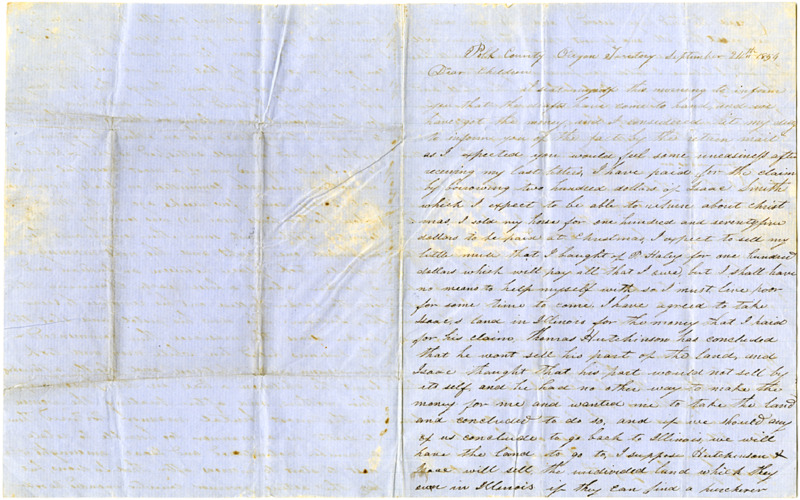 Polk County Oregon Teretory September 24th 1854
Dear Children
I seat myself this morning to inform
you that the drafts have come to hand, and we
have got the mony, and I considered it my duty
to inform you of the fact by the return mail
as I expected you would feel some uneasiness after
receiving my last letter, I have paid for the claim
by borrowing two hundred dollars of Isaac Smith
which I expect to be able to return about Christ
mas, I sold my horse for one hundred and seventyfive
dollars to be paid at Christmas, I expect to sell my
little mule that I baught of P Haley for one hundred
dollars which will pay all that I owe, but I shall have
no means to help myself with so I must live poor
for some time to come I have agreed to take
Isaacs land in Illinois for the money that I paid
for his claim, Thomas Hutchinson has concluded
that he wont sell his part of the land, and
Isaac thought that his part would not sell by
its self and he had no other way to make the
money for me and wanted me to take the land
and concluded to do so, and if we should any
of us conclude to go back to Illinois we will
have the land to go to, I suppose Hutchinson &
Isaac will sell the undivided land which they
own in Illinois if they can find a purchaser